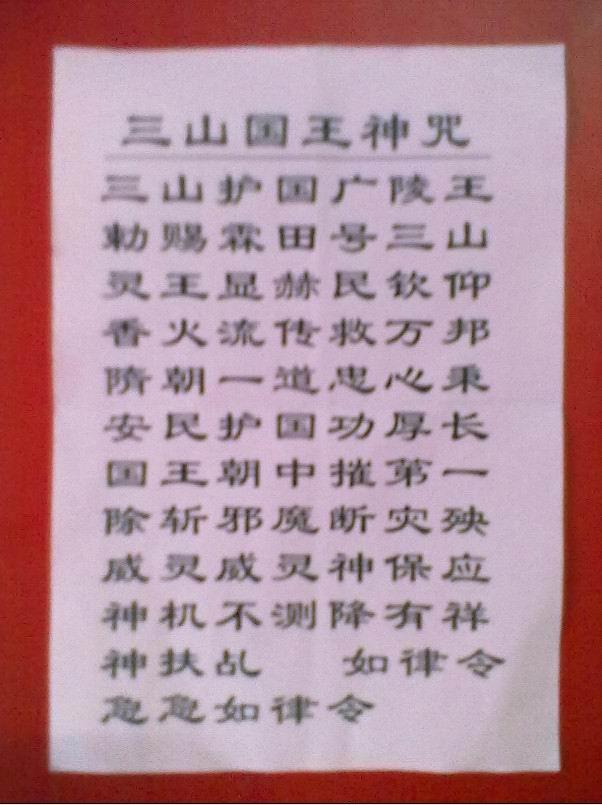 三山国王神咒
三山护国广陵王
勅赐霖田号三山
灵王显赫民钦仰
香火流传救万邦
隋朝一道忠心秉
安民护国功厚长
国王朝中摧第一
除斩邪魔断灾殃
威灵威灵神保应
神机不测降有祥
神扶乩 如律令
急急如律令